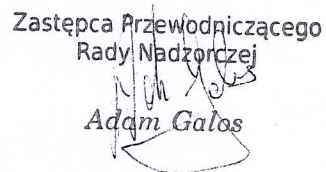 Zastępca Przewodniczącego
Rady Nadzorczej
Adam Galos